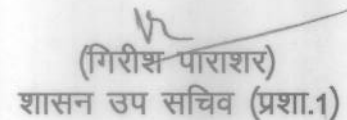 (गिरीश पाराशर)
शासन उप सचिव (प्रशा.1)